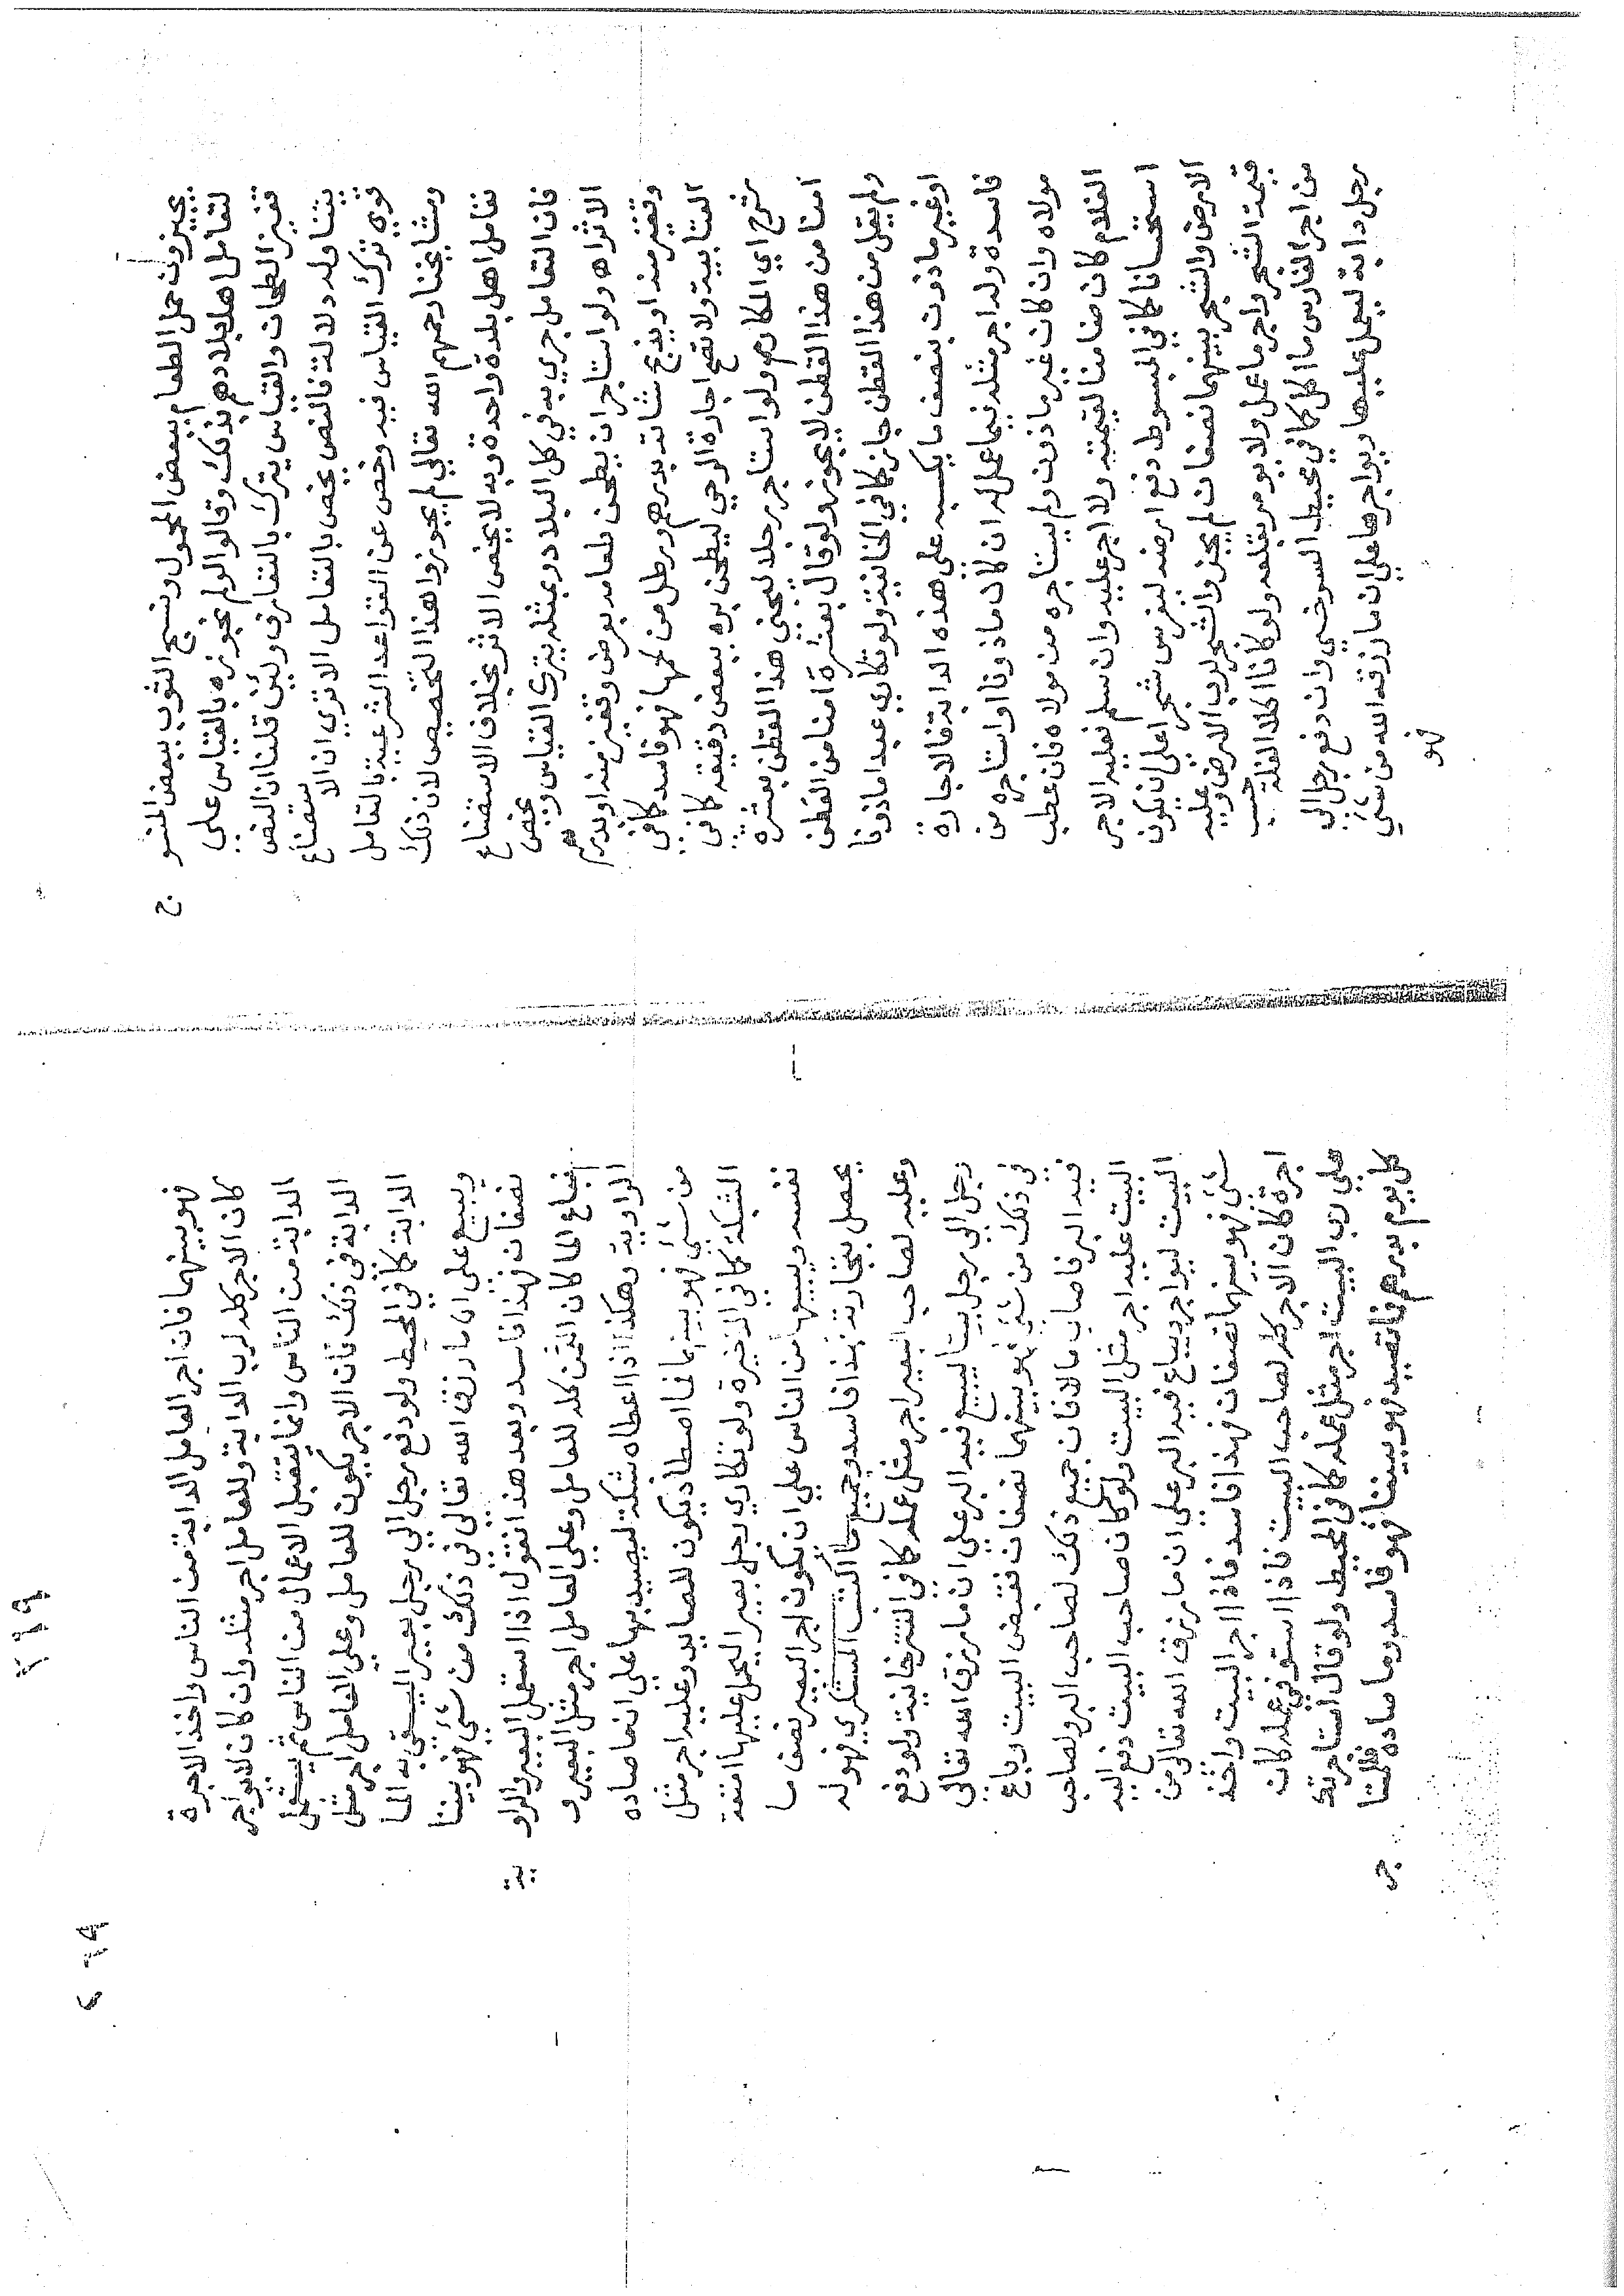 يجيزون حمل الطعام ببعض المحمول ونسج الثوب ببعض المنسو
ج
لتعامل اهل بلادهم بذلك وقالوا لم نجوزه بالقياس على
قفيز الطحان والقياس يترك بالتعارف ولئن قلنا ان النص
يتناوله دلالة فالنص يخص بالتعامل الا تري ان الاستصناع
قوي ترك القياس فيه وخص عن القواعد الشرعية بالتعامل
ومشايخنا رحمهم الله تعالي لم يجوزوا هذا التخصيص لان ذلك
تعامل اهل بلدة واحدة وبه لا يخص الاثر بخلاف الاستصناع
فان التعامل جري به في كل البلاد وبمثله يترك القياس ويخص
الاثر اه ولو استاجر ان يطحن طعامه بعرض وقفيز منه او بدرهم
وقفيز منه او يذبح شاته بدرهم ورطل من لحمها فهو فاسد كافي
العتابية ولا تصح اجارة الرحي ليطحن بره ببعض دقيقه كما في
شرح ابي المكارم ولو استاجر رجلا ليجني هذا القطن بعشرة
امنا من هذا القطن لا يجوز ولو قال بعشرة امنا من القطن
ولم يقل من هذا القطن جاز كما في الخانية ولو تكاري عبدا ماذونا
او غير ماذون بنصف ما يكسبه على هذه الدابة فالاجارة
فاسدة وله اجر مثله فيما عمل له ان كان ماذونا او استاجره من
مولاه وان كان غير ماذون ولم يستاجره من مولاه فان عطب
الغلام كان ضامنا لقيمته ولا اجر عليه وان سلم فعليه الاجر
استحسانا كما في المبسوط دفع ارضه ليغرس شجرا على ان يكون
الارض والشجر بينهما نصفان لم يجز والشجر لرب الارض وعليه
قيمة الشجر واجر ما عمل ولا يومر بقلعه ولو كانا اكلا الغلة حسب
من اجر الغارس ما اكل كما في محيط السرخسي وان دفع رجل الي
رجل دابة ليعمل عليها ويواجرها علي ان ما رزق الله من شئ
فهو
فهو بينهما فان اجر العامل الدابة من الناس واخذ الاجرة
كان الاجر كله لرب الدابة وللعامل اجر مثله وان كان لا يواجر
الدابة من الناس وانما يتقبل الاعمال من الناس ثم يستعمل
الدابة في ذلك فان الاجر يكون للعامل وعلي العامل اجر مثل
الدابة كما في المحيط ولو دفع رجل الي رجل بعيرا ليسقي به الما
ويبيع علي ان ما رزق الله تعالى في ذلك من شئ فهو بيننا
نصفان فهذا فاسد وبعد هذا نقول اذا استعمل البعير والراو
ية
فباع الما كان الثمن كله للعامل وعلي العامل اجر مثل البعير و
الراوية وهكذا اذا اعطاه شبكة ليصيد بها على ان ما صاده
من شئ فهو بينهما فما اصطاد يكون للصايد وعليه اجر مثل
الشبكة كما في الذخيرة ولو تكاري رجل بعيرا ليحمل عليها امتعة
نفسه ويبيعها من الناس علي ان يكون اجر البعير نصف ما
يحصل بتجارته فهذا فاسد وجميع ما اكتسب المستكري فهو له
وعليه لصاحب البعير اجر مثل عمله كما في التترخانية ولو دفع
رجل الي رجل بيتا ليبيع فيه البر علي ان ما رزق الله تعالى
في ذلك من شئ فهو بينهما نصفان فقبض البيت وباع
فيه البر فاصاب مالا فان جميع ذلك لصاحب البر ولصاحب
البيت عليه اجر مثل البيت ولو كان صاحب البيت دفع اليه
البيت ليواجر ويباع فيه البر علي ان ما رزق الله تعالى من
شئ فهو بينهما نصفان فهذا فاسد فاذا اجر البيت واخذ
اجرة كان الاجر كله لصاحب البيت فاذا استوفي عمله كان
علي رب البيت اجر مثل عمله كما في المحيط ولو قال استاجرتك
كل يوم بدرهم فاتصيد فهو بيننا فهو فاسد وما صاده فللمستا
جر